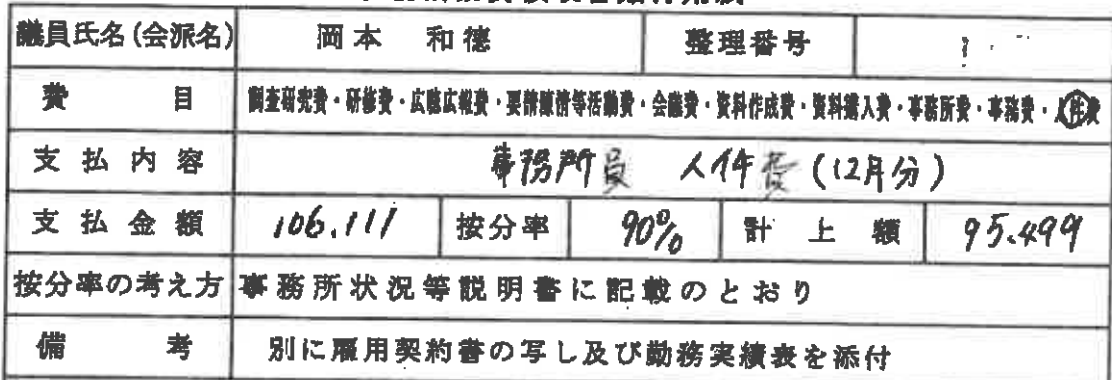 議員氏名(会派名) 岡本 和徳 整理番号
費目 調査研究費・研修費・広聴広報費・要請陳情等活動費・会議費・資料作成費・資料購入費・事務所費・事務費・人件費
支払内容 事務所員 人件費 (12月分)
支払金額 106.111 按分率 90% 計上額 95.499
按分率の考え方 事務所状況等説明書に記載のとおり
備考 別に雇用契約書の写し及び勤務実績表を添付